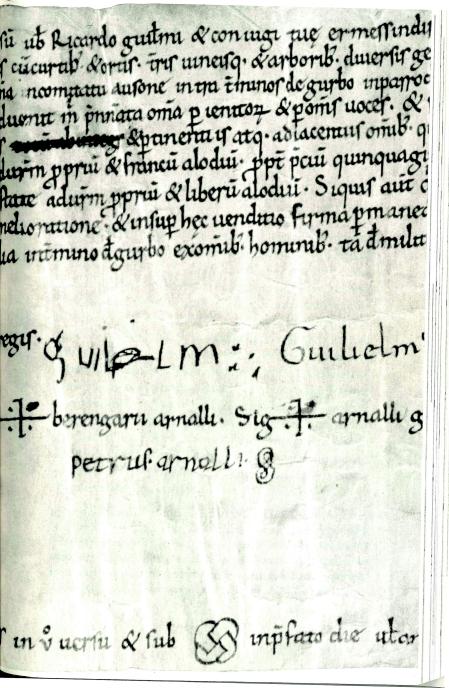 sū ub Ricardo guilmi & coniugi tuę ermessindis
s cū curtib; & ortis. t̄ris uineisq; & arborib; diuersis ge
in comitatu ausone intra t̄minos de gurbo in parroc
aduenit in p̄nnata om̄a p ienitoȝ & p om̄s uoces. &
& ptinentiis atq; adiacentiis om̄ib; q
p̄priū & francū alodiū. ppt p̄ciū quinquagi
ad ur̄m p̄priū & liberū alodiū. Siquis aut̄ c
melioratione. & insup hec uenditio firma p̄maneat
in t̄mino d̄ gurbo ex om̄ib; hominib; tā d̄ milit
regis. Guilelm Guilielm
berengarii arnalli. Sig arnalli g
petrus. arnalli.
in ů uersu & sub in p̄fato die